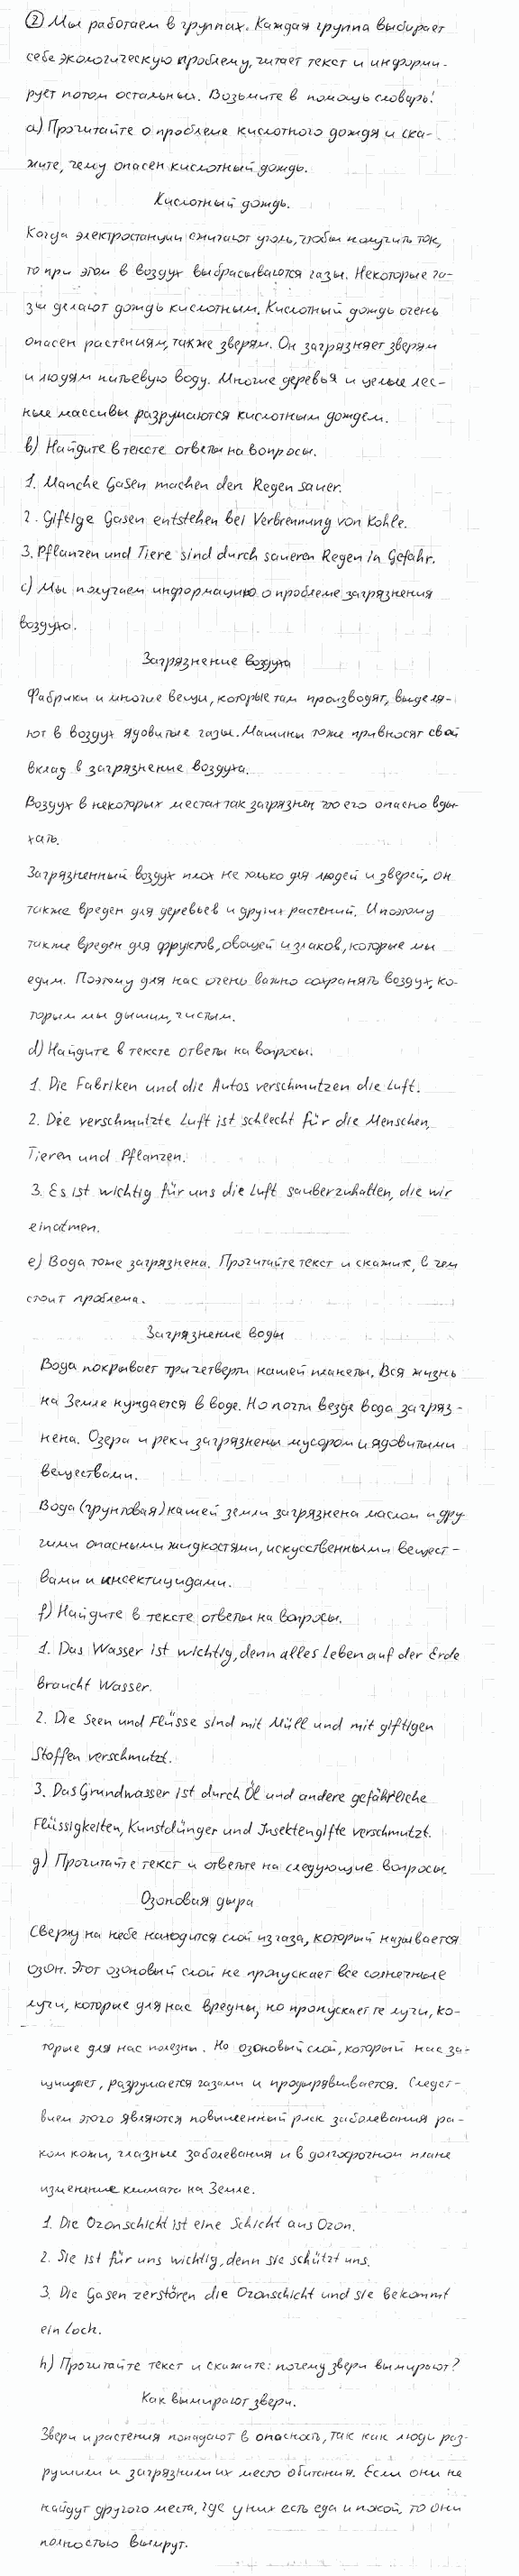 ② Мы работаем в группах. Каждая группа выбирает
себе экологическую проблему, читает текст и информи-
рует потом остальных. Возьмите в помощь словарь!
а) Прочитайте о проблеме кислотного дождя и ска-
жите, чему опасен кислотный дождь.
Кислотный дождь.
Когда электростанции сжигают уголь, чтобы получить ток,
то при этом в воздух выбрасываются газы. Некоторые га-
зы делают дождь кислотным. Кислотный дождь очень
опасен растениям, также зверям. Он загрязняет зверям
и людям питьевую воду. Многие деревья и целые лес-
ные массивы разрушаются кислотным дождем.
b) Найдите в тексте ответы на вопросы.
1. Manche Gasen machen den Regen sauer.
2. Giftige Gasen entstehen bei Verbrennung von Kohle.
3. Pflanzen und Tiere sind durch saueren Regen in Gefahr.
c) Мы получаем информацию о проблеме загрязнения
воздуха.
Загрязнение воздуха
Фабрики и многие вещи, которые там производят, выделя-
ют в воздух ядовитые газы. Машины тоже привносят свой
вклад в загрязнение воздуха.
Воздух в некоторых местах так загрязнен что его опасно вды-
хать.
Загрязненный воздух плох не только для людей и зверей, он
также вреден для деревьев и других растений. И поэтому
также вреден для фруктов, овощей и злаков, которые мы
едим. Поэтому для нас очень важно сохранять воздух, ко-
торым мы дышим, чистым.
d) Найдите в тексте ответы на вопросы.
1. Die Fabriken und die Autos verschmutzen die Luft.
2. Die verschmutzte Luft ist schlecht für die Menschen,
Tieren und Pflanzen.
3. Es ist wichtig für uns die Luft sauberzuhalten, die wir
einatmen.
e) Вода тоже загрязнена. Прочитайте текст и скажите, в чем
стоит проблема.
Загрязнение воды
Вода покрывает три четверти нашей планеты. Вся жизнь
на Земле нуждается в воде. Но почти везде вода загряз-
нена. Озера и реки загрязнены мусором и ядовитыми
веществами.
Вода (грунтовая) нашей земли загрязнена маслом и дру-
гими опасными жидкостями, искусственными вещест-
вами и инсектицидами.
f) Найдите в тексте ответы на вопросы.
1. Das Wasser ist wichtig, denn alles Leben auf der Erde
braucht Wasser.
2. Die Seen und Flüsse sind mit Müll und mit giftigen
Stoffen verschmutzt.
3. Das Grundwasser ist durch Öl und andere gefährliche
Flüssigkeiten, Kunstdünger und Insektengifte verschmutzt.
g) Прочитайте текст и ответьте на следующие вопросы.
Озоновая дыра
Сверху на небе находится слой из газа, который называется
озон. Этот озоновый слой не пропускает все солнечные
лучи, которые для нас вредны, но пропускает те лучи, ко-
торые для нас полезны. Но озоновый слой, который нас за-
щищает, разрушается газами и продырявливается. Следст-
вием этого являются повышенный риск заболевания ра-
ком кожи, глазные заболевания и в долгосрочном плане
изменение климата на Земле.
1. Die Ozonschicht ist eine Schicht aus Ozon.
2. Sie ist für uns wichtig, denn sie schützt uns.
3. Die Gasen zerstören die Ozonschicht und sie bekommt
ein Loch.
h) Прочитайте текст и скажите: почему звери вымирают?
Как вымирают звери.
Звери и растения попадают в опасность, так как люди раз-
рушили и загрязнили их место обитания. Если они не
найдут другого места, где у них есть еда и покой, то они
полностью вымрут.